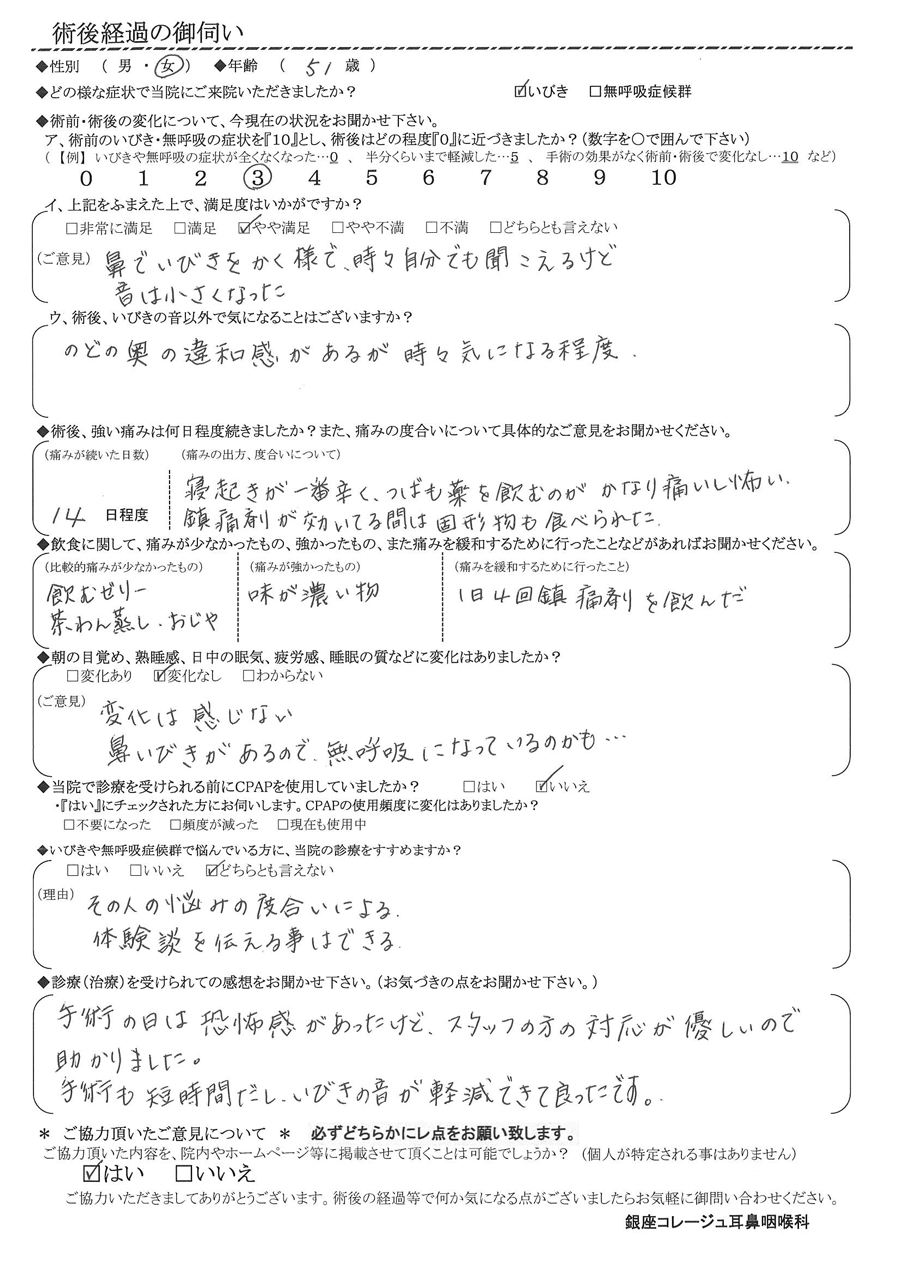 術後経過の御伺い
◆性別 （ 男 ・ 女 ） ◆年齢 （ 51 歳 ）
◆どの様な症状で当院にご来院いただきましたか？ ☑いびき □無呼吸症候群
◆術前・術後の変化について、今現在の状況をお聞かせ下さい。
ア、術前のいびき・無呼吸の症状を『10』とし、術後はどの程度『0』に近づきましたか？（数字を〇で囲んで下さい）
（【例】 いびきや無呼吸の症状が全くなくなった…0 、 半分くらいまで軽減した…5 、 手術の効果がなく術前・術後で変化なし…10 など）
0 1 2 3 4 5 6 7 8 9 10
イ、上記をふまえた上で、満足度はいかがですか？
□非常に満足 □満足 ☑やや満足 □やや不満 □不満 □どちらとも言えない
（ご意見） 鼻でいびきをかく様で、時々自分でも聞こえるけど
音は小さくなった
ウ、術後、いびきの音以外で気になることはございますか？
のどの奥の違和感があるが時々気になる程度.
◆術後、強い痛みは何日程度続きましたか？また、痛みの度合いについて具体的なご意見をお聞かせください。
（痛みが続いた日数） （痛みの出方、度合いについて）
寝起きが一番辛く、つばも薬を飲むのがかなり痛いし怖い.
14 日程度 鎮痛剤が効いてる間は固形物も食べられた.
◆飲食に関して、痛みが少なかったもの、強かったもの、また痛みを緩和するために行ったことなどがあればお聞かせください。
（比較的痛みが少なかったもの） （痛みが強かったもの） （痛みを緩和するために行ったこと）
飲むゼリー 味が濃い物 1日4回鎮痛剤を飲んだ
茶わん蒸し、おじや
◆朝の目覚め、熟睡感、日中の眠気、疲労感、睡眠の質などに変化はありましたか？
□変化あり ☑変化なし □わからない
（ご意見） 変化は感じない
鼻いびきがあるので、無呼吸になっているのかも…
◆当院で診療を受けられる前にCPAPを使用していましたか？ □はい ☑いいえ
・『はい』にチェックされた方にお伺いします。CPAPの使用頻度に変化はありましたか？
□不要になった □頻度が減った □現在も使用中
◆いびきや無呼吸症候群で悩んでいる方に、当院の診療をすすめますか？
□はい □いいえ ☑どちらとも言えない
（理由） その人の悩みの度合いによる.
体験談を伝える事はできる.
◆診療（治療）を受けられての感想をお聞かせ下さい。（お気づきの点をお聞かせ下さい。）
手術の日は恐怖感があったけど、スタッフの方の対応が優しいので
助かりました。
手術も短時間だし、いびきの音が軽減できて良ったです。
＊ ご協力頂いたご意見について ＊ 必ずどちらかにレ点をお願い致します。
ご協力頂いた内容を、院内やホームページ等に掲載させて頂くことは可能でしょうか？ （個人が特定される事はありません）
☑はい □いいえ
ご協力いただきましてありがとうございます。術後の経過等で何か気になる点がございましたらお気軽に御問い合わせください。
銀座コレージュ耳鼻咽喉科